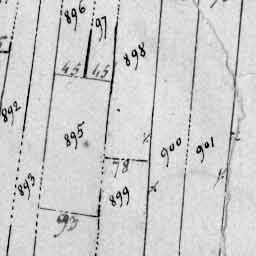 896
97
898
45
45
892
895
900
901
78
893
899
93